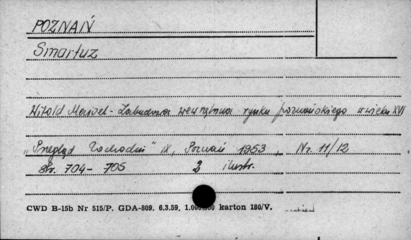 POZNAŃ
Smartuz
Witold Maisel - Zabudowa wewnętrzna rynku poznańskiego w wieku XVI
„Przegląd Zachodni" IX, Poznań 1953, Nr. 11/12
str. 704-705 2 ilustr.
CWD B-15b Nr 515/P. GDA-809. 6.3.59. karton 180/V.